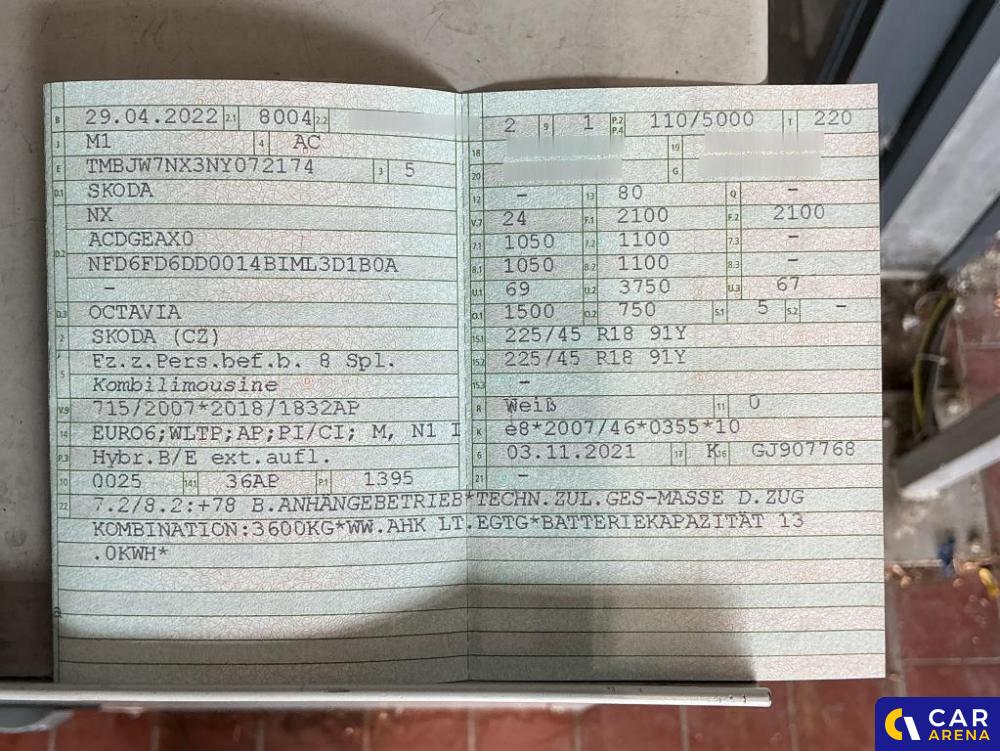 B 29.04.2022 2.1 8004 2.2
J M1 4 AC
E TMBJW7NX3NY072174 3 5
D.1 SKODA
NX
D.2 ACDGEAX0
NFD6FD6DD0014BIML3D1B0A
-
D.3 OCTAVIA
2 SKODA (CZ)
5 Fz.z.Pers.bef.b. 8 Spl.
Kombilimousine
V.9 715/2007*2018/1832AP
14 EURO6;WLTP;AP;PI/CI; M, N1 I
P.3 Hybr.B/E ext.aufl.
10 0025 14.1 36AP P.1 1395
2 9 1 P.2 P.4 110/5000 T 220
18 19
20 G
12 - 13 80 Q -
V.7 24 F.1 2100 F.2 2100
7.1 1050 7.2 1100 7.3 -
8.1 1050 8.2 1100 8.3 -
U.1 69 U.2 3750 U.3 67
O.1 1500 O.2 750 S.1 5 S.2 -
15.1 225/45 R18 91Y
15.2 225/45 R18 91Y
15.3 -
R Weiß 11 0
K e8*2007/46*0355*10
6 03.11.2021 17 K 16 GJ907768
21 -
22 7.2/8.2:+78 B.ANHÄNGEBETRIEB*TECHN.ZUL.GES-MASSE D.ZUG
KOMBINATION:3600KG*WW.AHK LT.EGTG*BATTERIEKAPAZITÄT 13
.0KWH*
CAR
ARENA